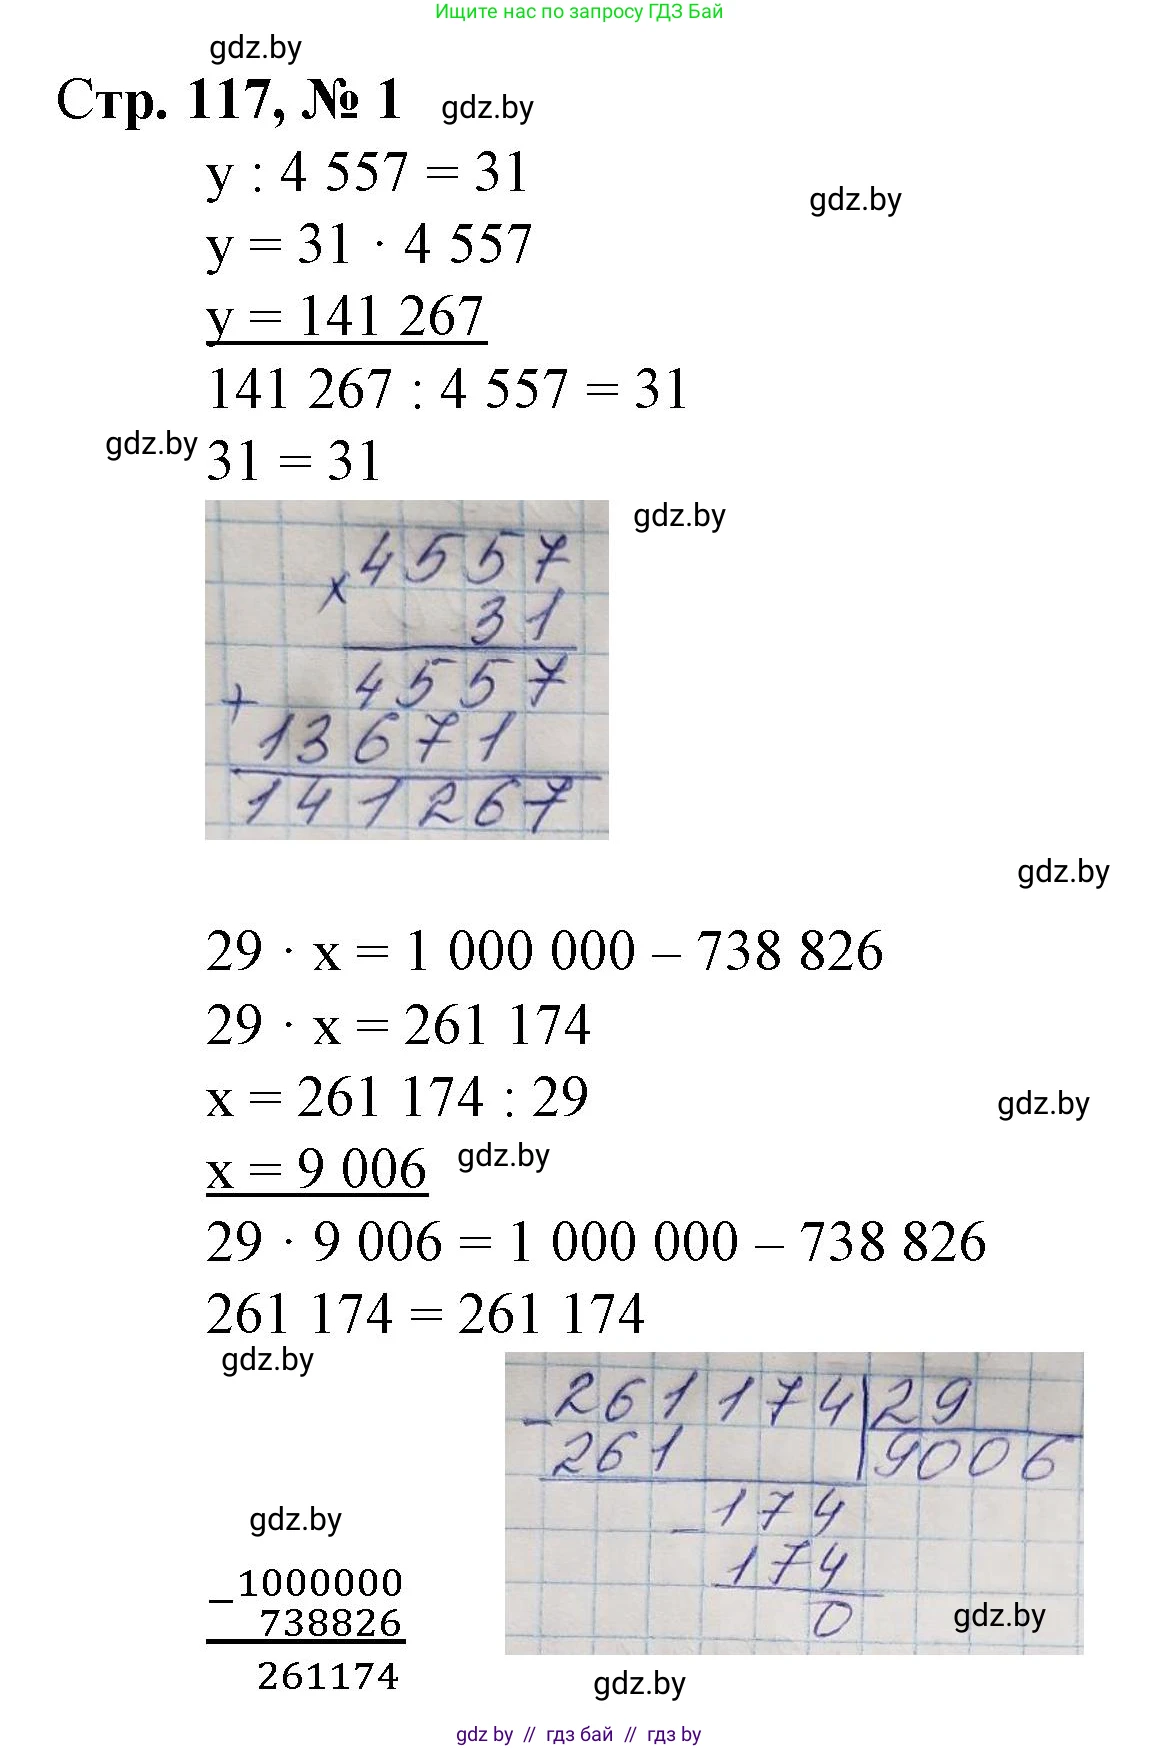 Ищите нас по запросу ГДЗ Бай
gdz.by
Стр. 117, № 1
gdz.by
у : 4 557 = 31
gdz.by
у = 31 · 4 557
у = 141 267
141 267 : 4 557 = 31
gdz.by
31 = 31
gdz.by
4557
×
31
4557
+
13671
141267
gdz.by
29 · х = 1 000 000 – 738 826
29 · х = 261 174
х = 261 174 : 29
gdz.by
х = 9 006
gdz.by
29 · 9 006 = 1 000 000 – 738 826
261 174 = 261 174
gdz.by
261174 29
–
261 9006
–174
174
0
gdz.by
gdz.by
–1000000
738826
261174
gdz.by
gdz by // гдз бай // гдз by